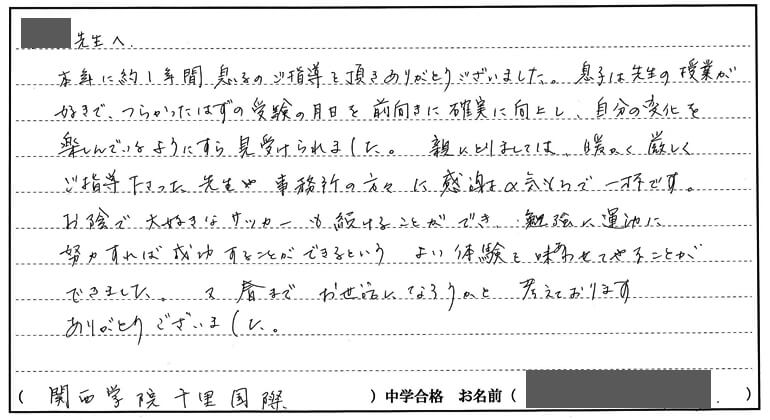 先生へ.
本年に約1年間 息子のご指導を頂きありがとうございました。息子は先生の授業が
好きで、つらかったはずの受験の月日を前向きに確実に向上し、自分の変化を
楽しんでいるようにすら見受けられました。親にとりましては、暖かく厳しく
ご指導下さった先生や事務所の方々に感謝の気もちで一杯です。
お陰で大好きなサッカーも続けることができ、勉強に運動に
努力すれば成功することができるという よい体験を味わせてやることが
できました。又春まで お世話になろうかと 考えております
ありがとうございました。
( 関西学院千里国際 ) 中学合格 お名前 ( )